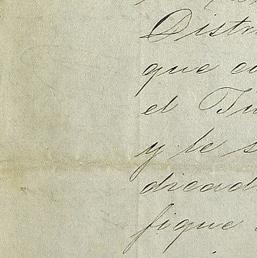 Distr
que co
el Tu
y le s
dicad
fique